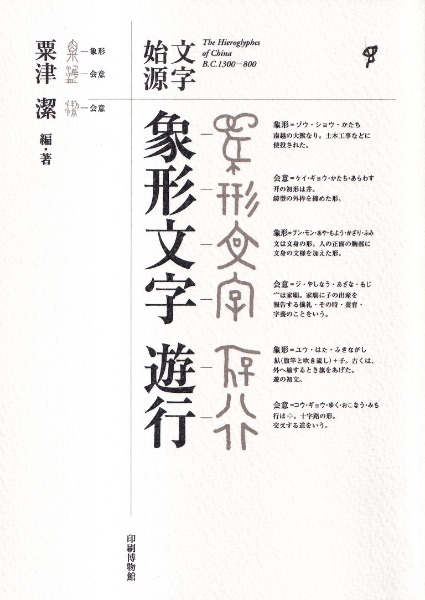 文字
始源
The Hieroglyphes
of China
B.C.1300–800
象形文字 遊行
粟津 潔 編・著
象形
会意
会意
象形=ゾウ・ショウ・かたち
南越の大獣なり。土木工事などに
使役された。
会意=ケイ・ギョウ・かたち・あらわす
开の初形は井。
鋳型の外枠を締めた形。
象形=ブン・モン・あや・もよう・かざり・ふみ
文は文身の形。人の正面の胸部に
文身の文様を加えた形。
会意=ジ・やしなう・あざな・もじ
宀は家廟。家廟に子の出産を
報告する儀礼・その時・養育・
字養のことをいう。
象形=ユウ・はた・ふきながし
㫃(旗竿と吹き流し)+子。古くは、
外へ旅するとき旗をあげた。
遊の初文。
会意=コウ・ギョウ・ゆく・おこなう・みち
十字路の形。
交叉する道をいう。
印刷博物館